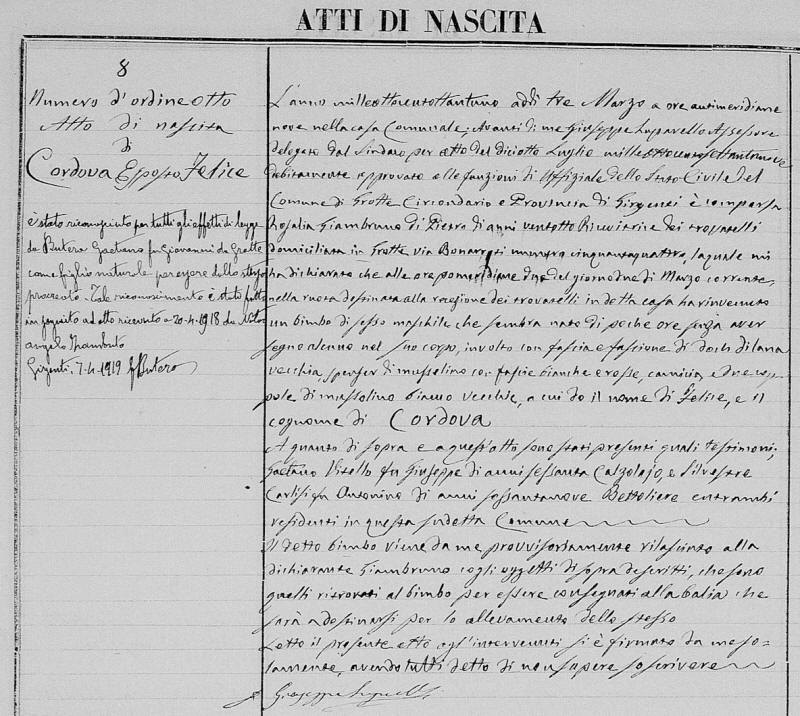 ATTI DI NASCITA
8
Numero d'ordine otto
Atto di nascita
di
Cordova Esposto Felice
è stato riconosciuto per tutti gli effetti di legge
da Butera Gaetano fu Giovanni da Grotte
come figlio naturale per essere dallo stesso
procreato. Tale riconoscimento è stato fatto
in seguito ad atto ricevuto a 20-4-1918 da Notar
Angelo
Girgenti, 7-4-1919 Butera
L'anno milleottocentottantuno addì tre Marzo a ore antimeridiane
nove nella casa Comunale. Avanti di me Giuseppe Luparello Assessore
delegato dal Sindaco per atto del diciotto Luglio milleottocentosettantanove
debitamente approvato alle funzioni di Uffiziale dello Stato Civile del
Comune di Grotte Circondario e Provincia di Girgenti è comparsa
Rosalia Giambruno di Pietro di anni ventotto Ricevitrice dei trovatelli
domiciliata in Grotte via Bonarroti numero cinquantaquattro, la quale mi
ha dichiarato che alle ore pomeridiane due del giorno due di Marzo corrente,
nella ruota destinata alla recezione dei trovatelli in detta casa ha rinvenuto
un bimbo di sesso maschile che sembra nato di poche ore senza aver
segno alcuno nel suo corpo, involto con fascia e fascione di di lana
vecchia, di mussolino con fascie bianche e rosse, camicia, e due cop-
pole di mussolino bianco vecchie, a cui do il nome di Felice, e il
cognome di Cordova
A quanto di sopra e a quest'atto sono stati presenti quali testimoni,
Gaetano Vitello fu Giuseppe di anni sessanta Calzolajo, e Silvestre
Carlisi fu Antonino di anni sessantanove Bettoliere entrambi
residenti in questa sudetta Comune
Il detto bimbo viene da me provvisoriamente rilasciato alla
dichiarante Giambruno cogli oggetti di sopra descritti, che sono
quelli ritrovati al bimbo per essere consegnati alla balia che
sarà a destinarsi per lo allevamento dello stesso
Letto il presente atto agl'intervenuti si è firmato da me so-
lamente, avendo tutti detto di non sapere soscrivere
Giuseppe Luparello